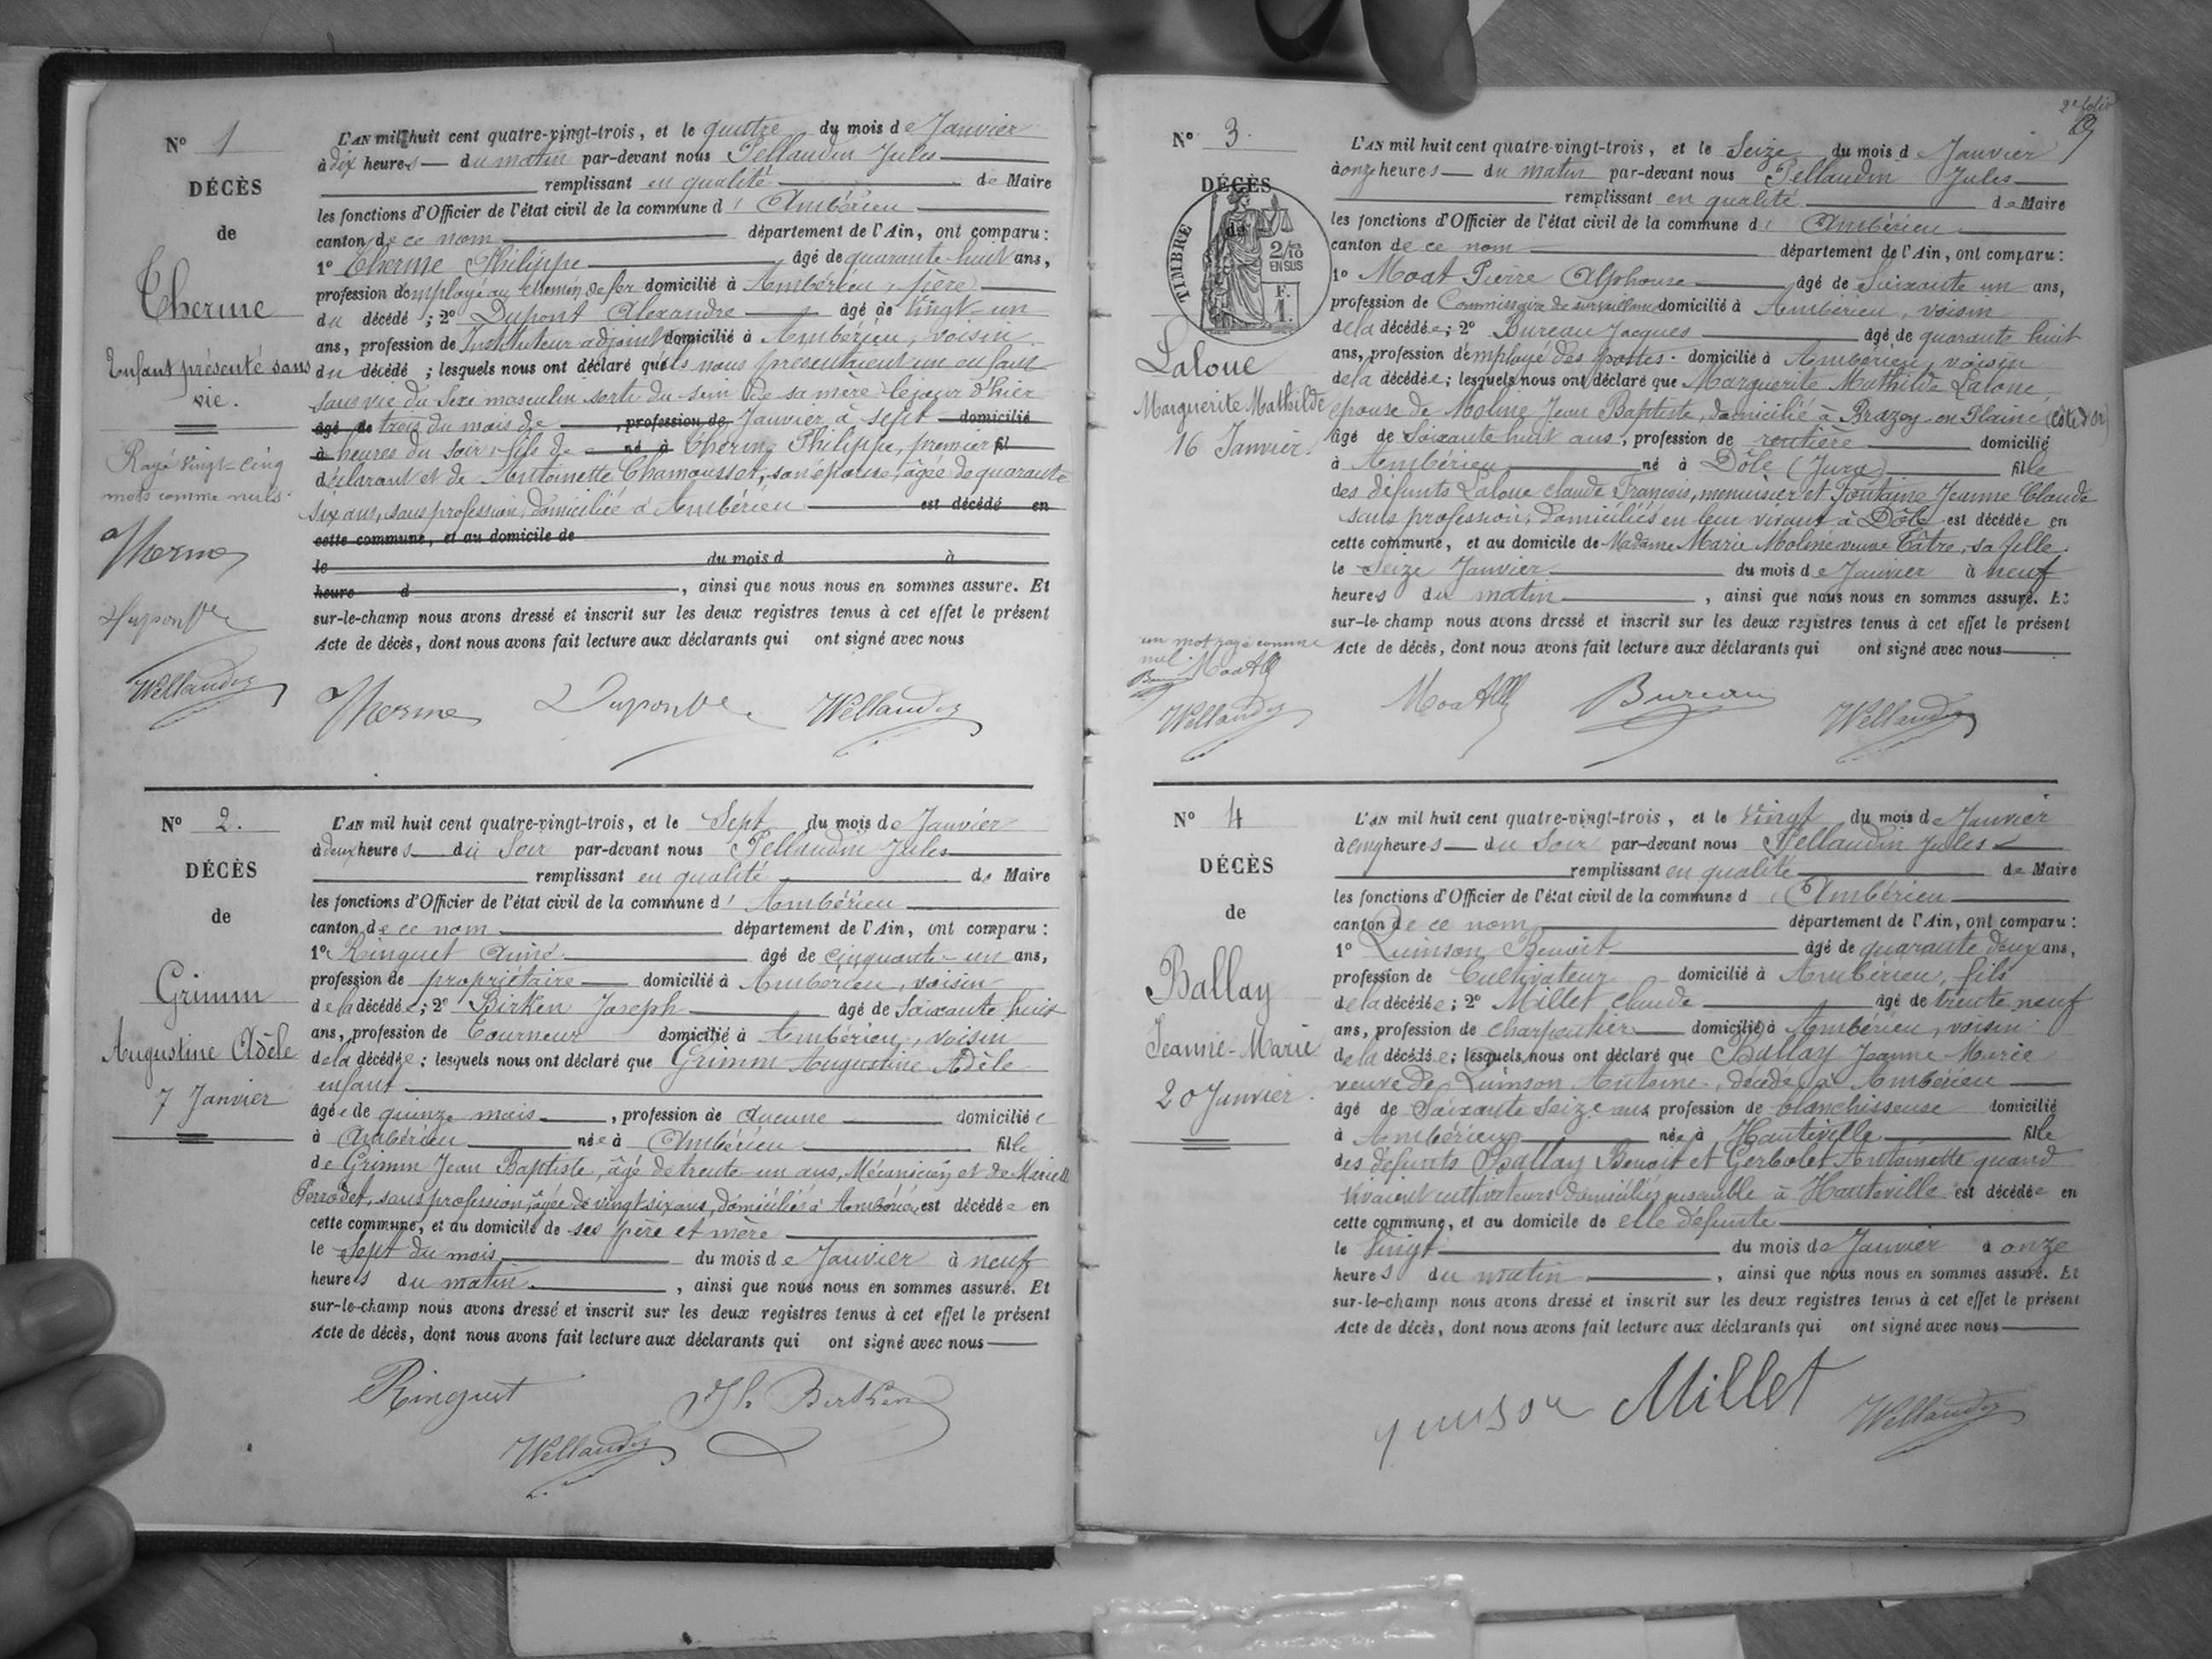 N° 1
DÉCÈS
de
Therme
Enfant présenté sans
vie.
Rayé vingt-cinq
mots comme nuls.
Therme
Dupont
Pellaudin
L'AN mil huit cent quatre-vingt-trois, et le quatre du mois de Janvier
à dix heures du matin par-devant nous Pellaudin Jules
remplissant en qualité de Maire
les fonctions d'Officier de l'état civil de la commune d'Ambérieu
canton de ce nom département de l'Ain, ont comparu:
1° Therme Philippe âgé de quarante-huit ans,
profession d'employé au chemin de fer domicilié à Ambérieu, père
du décédé; 2° Dupont Alexandre âgé de vingt-un
ans, profession de Instituteur adjoint domicilié à Ambérieu, voisin
du décédé; lesquels nous ont déclaré qu'ils nous présentaient un enfant
sans vie du sexe masculin sorti du sein de sa mère le jour d'hier
âgé de trois du mois de , profession de Janvier à sept domicilié
à heures du soir, fils de né à Therme Philippe, premier fil
déclarant et de Antoinette Chamousset, son épouse, âgée de quarante
six ans, sans profession, domiciliée à Ambérieu est décédé en
cette commune, et au domicile de
le du mois d à
heure d , ainsi que nous nous en sommes assuré. Et
sur-le-champ nous avons dressé et inscrit sur les deux registres tenus à cet effet le présent
Acte de décès, dont nous avons fait lecture aux déclarants qui ont signé avec nous
Therme Dupont Pellaudin
N° 2.
DÉCÈS
de
Grimm
Augustine Adèle
7 Janvier
L'AN mil huit cent quatre-vingt-trois, et le Sept du mois de Janvier
à deux heures du Soir par-devant nous Pellaudin Jules
remplissant en qualité de Maire
les fonctions d'Officier de l'état civil de la commune d'Ambérieu
canton de ce nom département de l'Ain, ont comparu:
1° Ringuet Aimé âgé de cinquante-un ans,
profession de propriétaire domicilié à Ambérieu, voisin
de la décédée; 2° Birken Joseph âgé de soixante huit
ans, profession de Tourneur domicilié à Ambérieu, voisin
de la décédée: lesquels nous ont déclaré que Grimm Augustine Adèle
enfant
âgée de quinze mois, profession de aucune domiciliée
à Ambérieu née à Ambérieu fille
de Grimm Jean Baptiste, âgé de trente-un ans, Mécanicien et de Marie
Perrodet, sans profession, âgée de vingt six ans, domiciliés à Ambérieu, est décédée en
cette commune, et au domicile de ses père et mère
le Sept du mois du mois de Janvier à neuf
heures du matin, ainsi que nous nous en sommes assuré. Et
sur-le-champ nous avons dressé et inscrit sur les deux registres tenus à cet effet le présent
Acte de décès, dont nous avons fait lecture aux déclarants qui ont signé avec nous
Ringuet
Pellaudin
2e folio
N° 3.
DÉCÈS
de
TIMBRE
2/10
EN SUS
F.
1.
Laloue
Marguerite Mathilde
16 Janvier.
un mot rayé comme
nul.
Pellaudin
L'AN mil huit cent quatre-vingt-trois, et le Seize du mois de Janvier
à onze heures du matin par-devant nous Pellaudin Jules
remplissant en qualité de Maire
les fonctions d'Officier de l'état civil de la commune d'Ambérieu
canton de ce nom département de l'Ain, ont comparu:
1° Moat Pierre Alphonse âgé de Soixante un ans,
profession de Commissaire de surveillance domicilié à Ambérieu, voisin
de la décédée; 2° Bureau Jacques âgé de quarante huit
ans, profession d'employé des postes. domicilié à Ambérieu, voisin
de la décédée; lesquels nous ont déclaré que Marguerite Mathilde Laloue,
épouse de Moline Jean Baptiste, domicilié à Brazey-en-Plaine (Côte d'Or)
âgé de Soixante huit ans, profession de rentière domicilié
à Ambérieu né à Dôle (Jura) fille
des défunts Laloue Claude François, menuisier et Fontaine Jeanne Claude
sans profession, domiciliés en leur vivant à Dôle est décédée en
cette commune, et au domicile de Madame Marie Moline veuve Câtre, sa fille.
le Seize Janvier du mois de Janvier à neuf
heures du matin, ainsi que nous nous en sommes assuré. Et
sur-le-champ nous avons dressé et inscrit sur les deux registres tenus à cet effet le présent
Acte de décès, dont nous avons fait lecture aux déclarants qui ont signé avec nous
Bureau Pellaudin
N° 4
DÉCÈS
de
Ballay
Jeanne-Marie
20 Janvier.
L'AN mil huit cent quatre-vingt-trois, et le Vingt du mois de Janvier
à cinq heures du Soir par-devant nous Pellaudin Jules
remplissant en qualité de Maire
les fonctions d'Officier de l'état civil de la commune d'Ambérieu
canton de ce nom département de l'Ain, ont comparu:
1° Quinson Benoit âgé de quarante deux ans,
profession de Cultivateur domicilié à Ambérieu, fils
de la décédée; 2° Millet Claude âgé de trente neuf
ans, profession de charpentier domicilié à Ambérieu, voisin
de la décédée; lesquels nous ont déclaré que Ballay Jeanne-Marie
veuve de Quinson Antoine, décédé à Ambérieu
âgé de Soixante Seize ans profession de blanchisseuse domicilié
à Ambérieu née à Hauteville fille
des défunts Ballay Benoit et Gerbolet Antoinette quand
vivaient cultivateurs domiciliés ensemble à Hauteville est décédée en
cette commune, et au domicile de elle défunte
le Vingt du mois de Janvier à onze
heures du matin, ainsi que nous nous en sommes assuré. Et
sur-le-champ nous avons dressé et inscrit sur les deux registres tenus à cet effet le présent
Acte de décès, dont nous avons fait lecture aux déclarants qui ont signé avec nous
quinson Millet Pellaudin